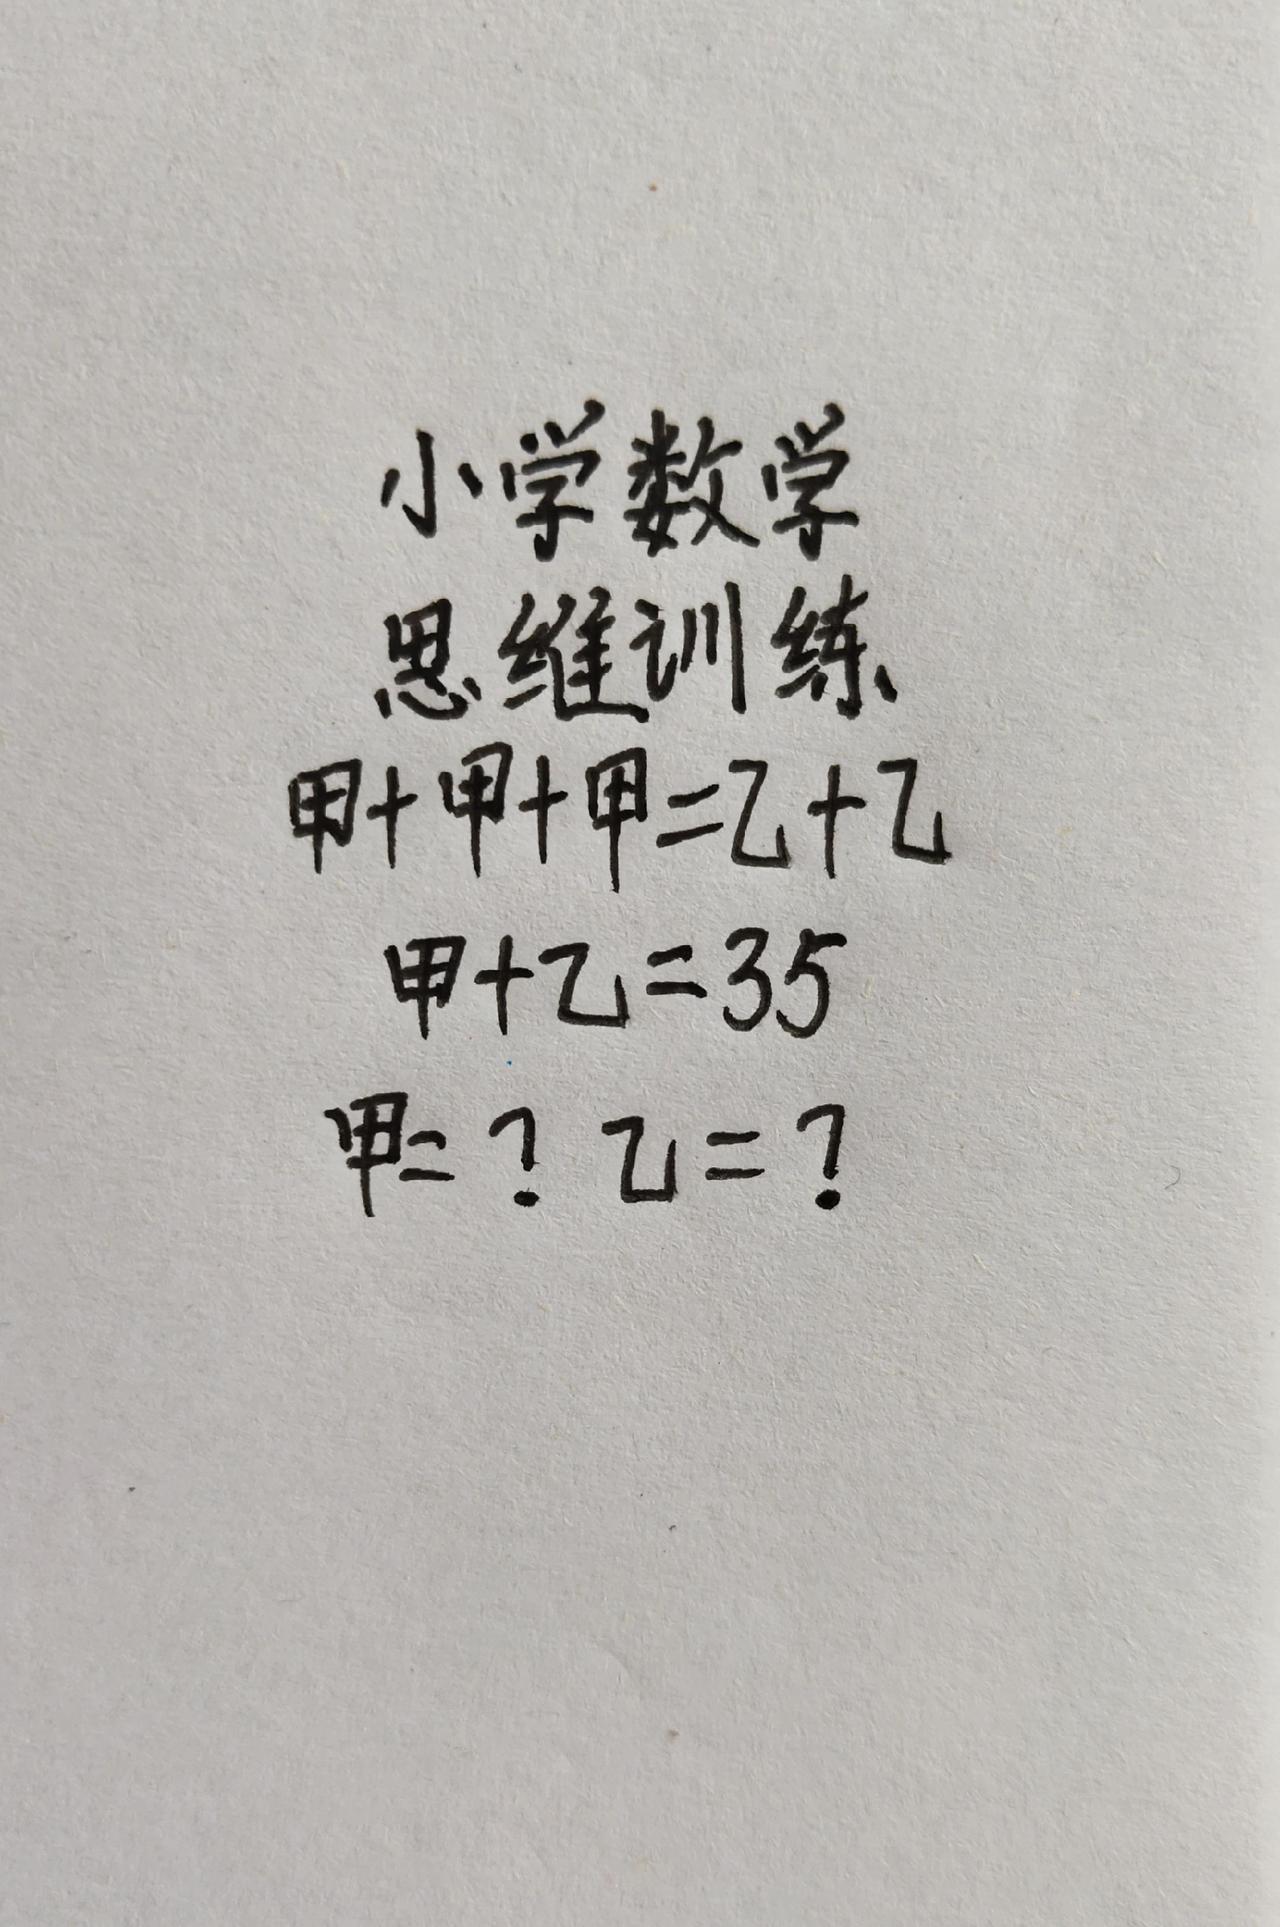 小学数学
思维训练
甲+甲+甲=乙+乙
甲+乙=35
甲=? 乙=?